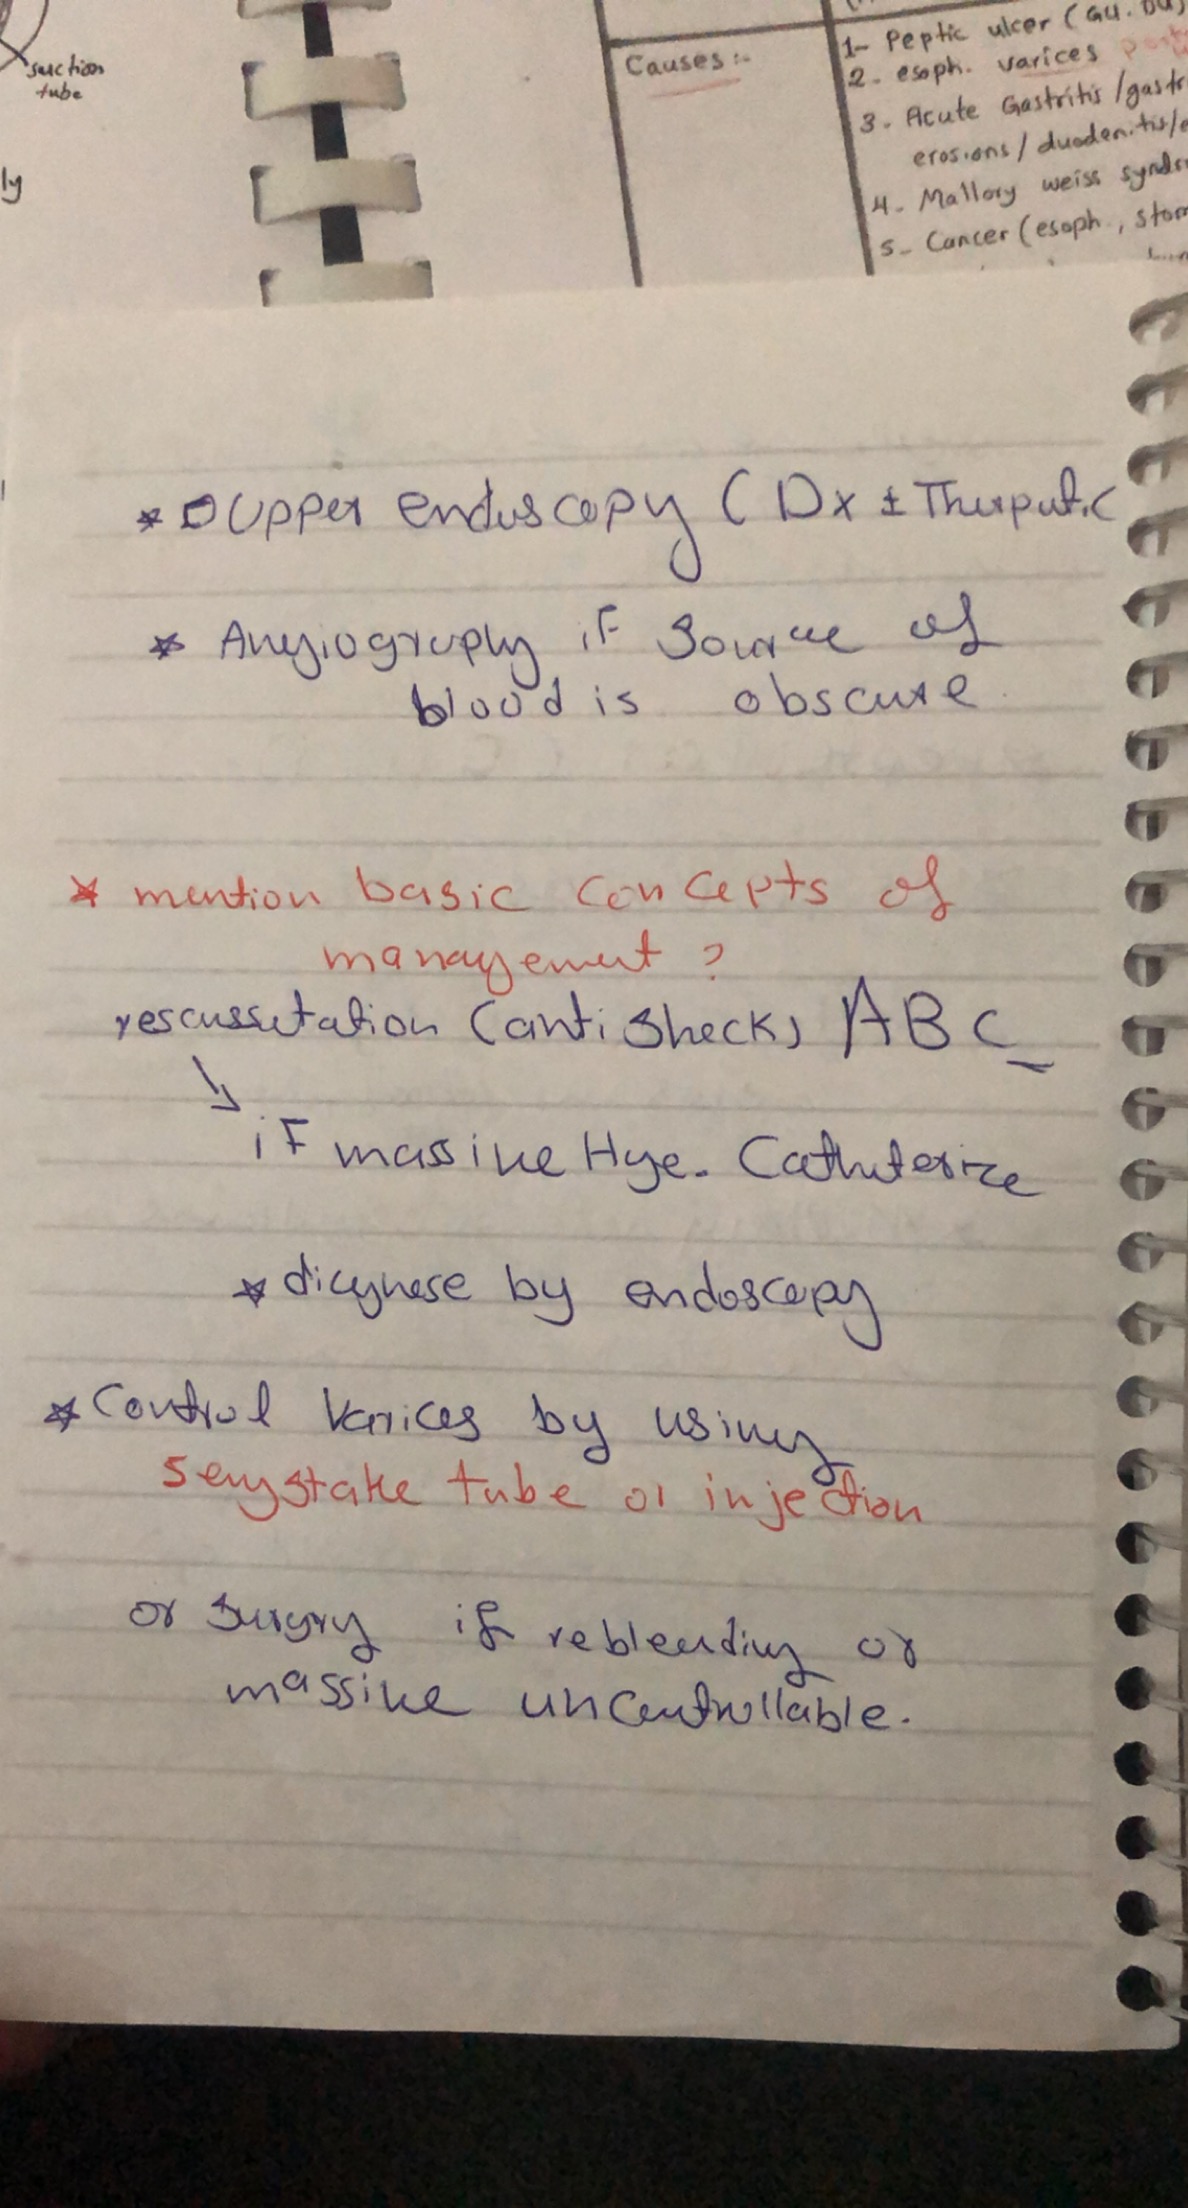 suction
tube
ly
Causes :-
1- Peptic ulcer (GU. DU)
2- esoph. varices
3- Acute Gastritis /gastr
erosions / duodenitis/e
4- Mallory weiss syndr
5- Cancer (esoph., stom
* Upper endoscopy (Dx ± Therputic
* Angiography if Source of
blood is obscure
* mention basic concepts of
management ?
rescussetation (anti shock) ABC
if massive Hge. Catheterize
* diagnose by endoscopy
* Control Varices by using
Sengstake tube or injection
or surgry if rebleeding or
massive uncontrollable.